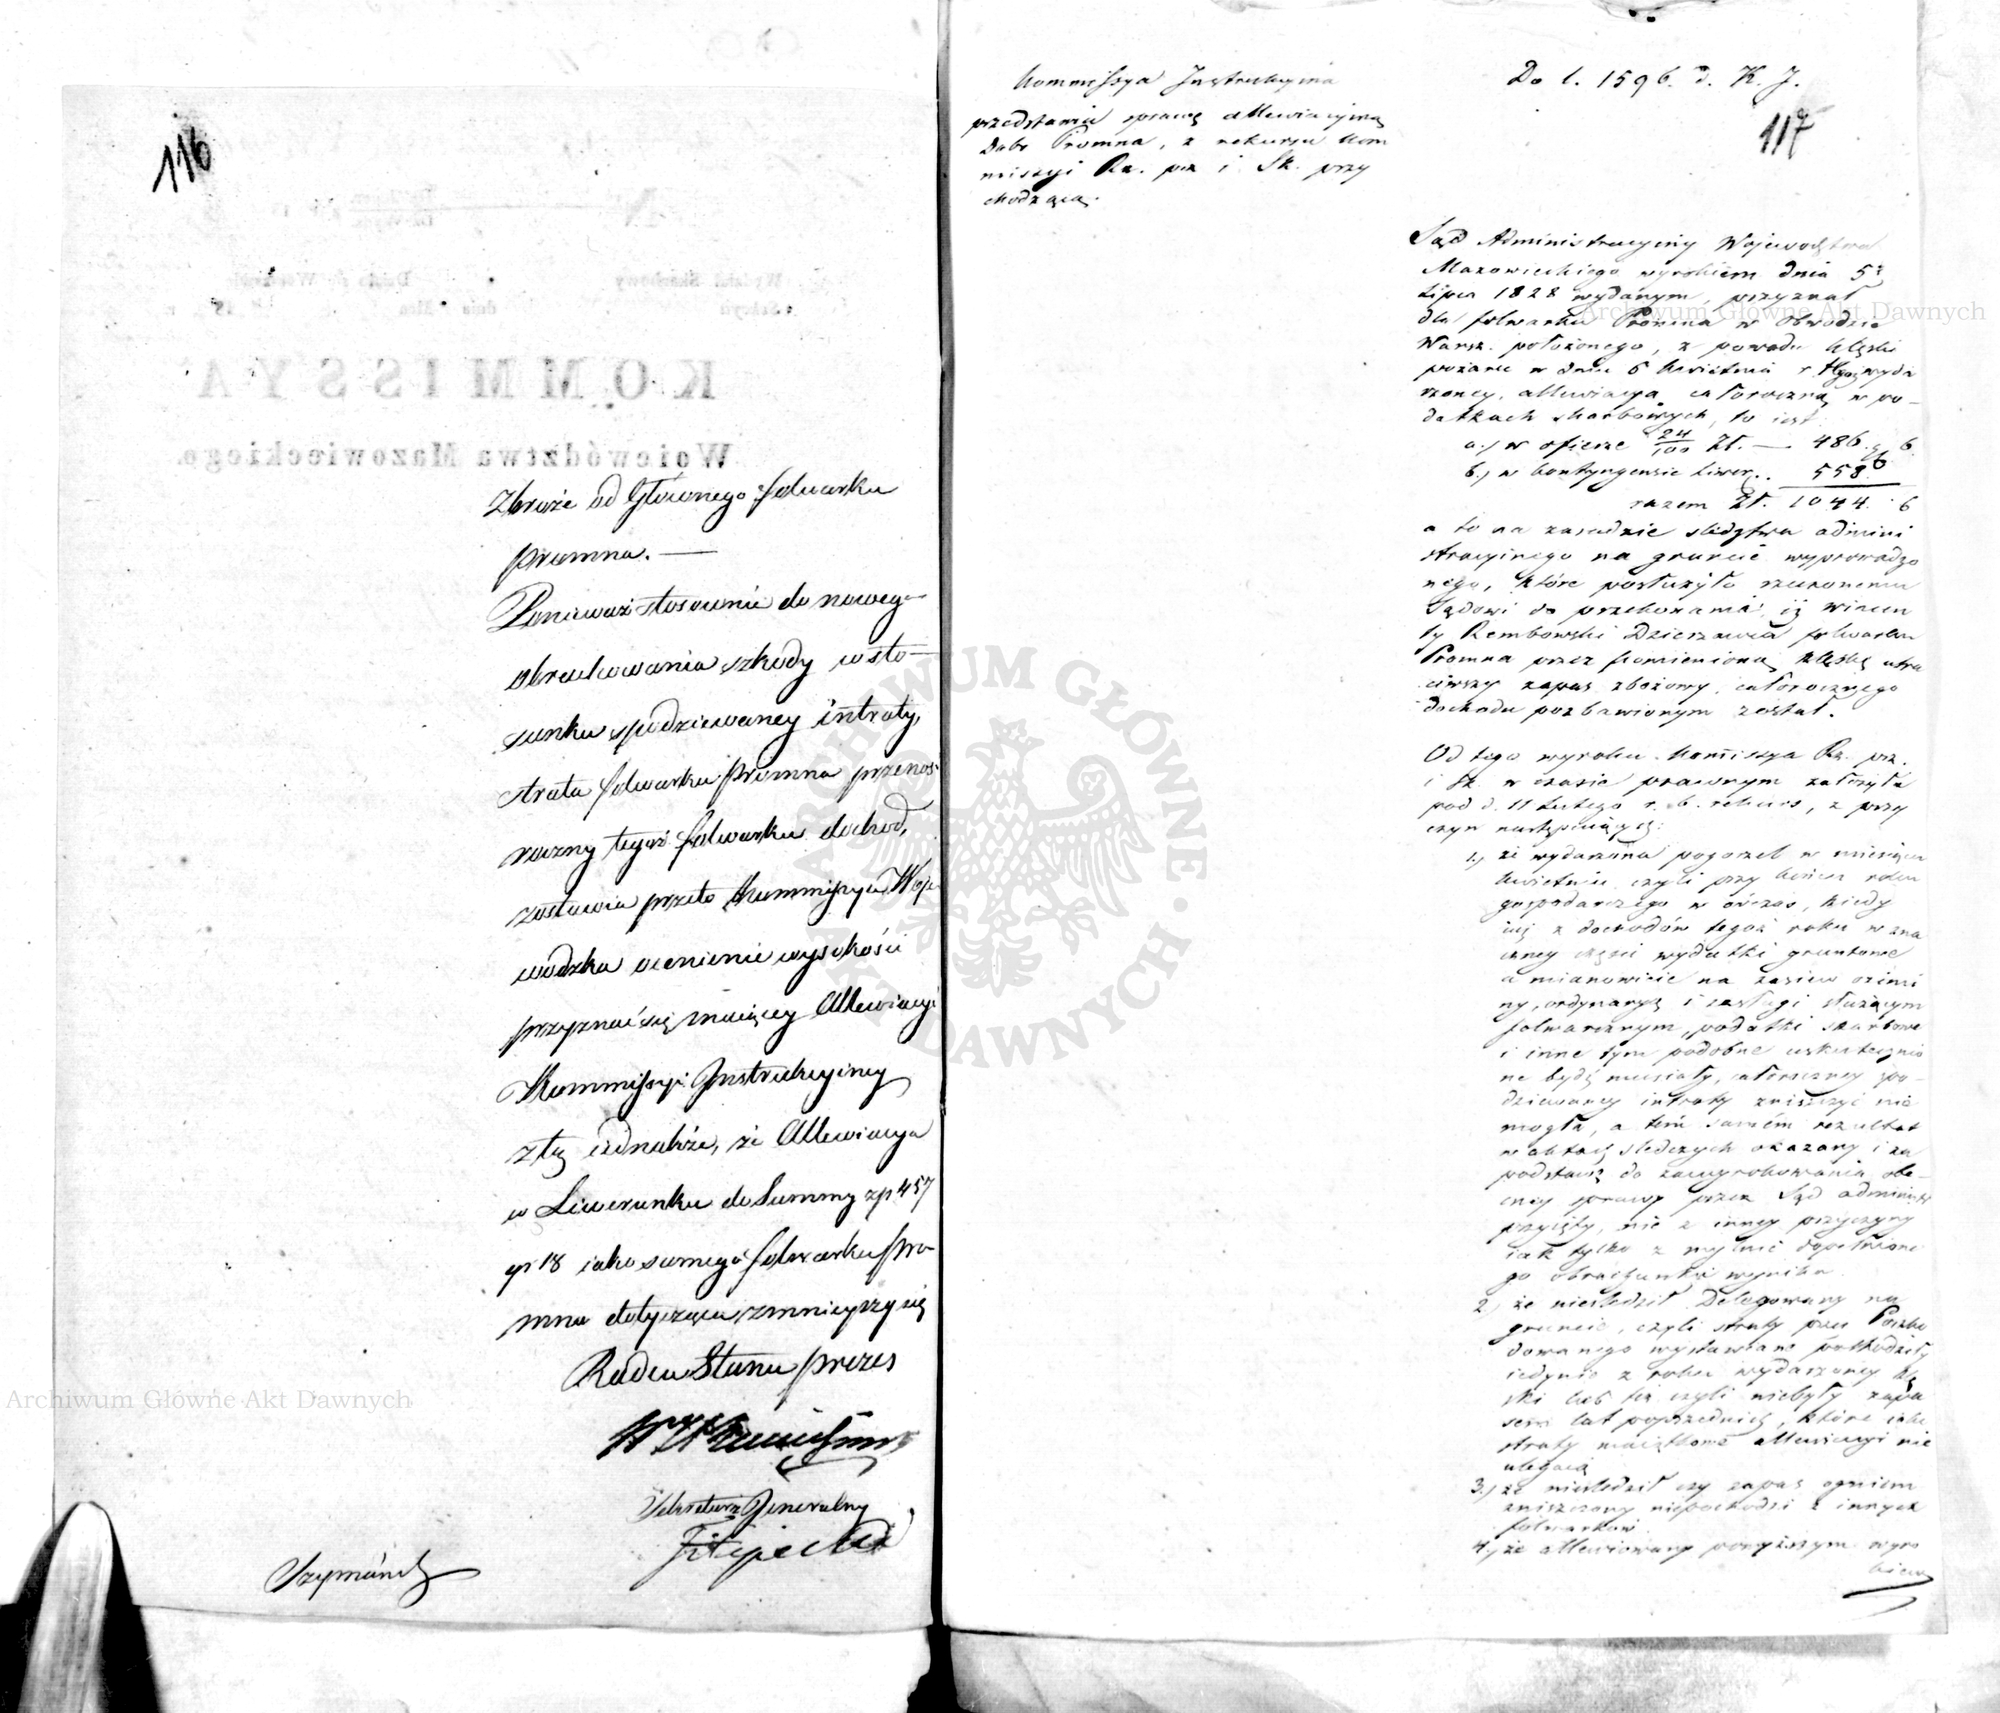 116
Zbroże od Głównego folwarku
Promna. —
Ponieważ stosownie do nowego
obrachowania szkody w sto-
sunku spodziewaney intraty,
strata folwarku Promna przenosi
roczny tegoż folwarku dochód,
zostawia przeto Kommissya Woje
wodzka ocenienie wysokości
przyznać się maiącey Allewiacyi
Kommissyi Instrukcyiney
z tą iednakże, że Allewiacya
w Liwerunku do Summy zp 457
gr 18 iako samego folwarku Pro-
mna dotycząca zmnieyszy się
Radca Stanu Prezes
Sekretarz Generalny
Filipecki
Kommissya Instrukcyina
przedstawia sprawę allewiacyiną
Dobr Promna, z rekursu Kom
missyi Rz. prz. i Sk. przy
chodzącą.
Do l. 1596. d. K. J.
117
Sąd Administracyiny Woiewództwa
Mazowieckiego wyrokiem dnia 5
Lipca 1828 wydanym, przyznał
dla folwarku Promna w Obwodzie
Warsz. położonego, z powodu klęski
pożaru w dniu 6 Kwietnia r. wyda
rzoney, allewiacyą całoroczną w po-
datkach skarbowych, to iest
a.) w ofierze 24/100 Zł. — 486. 6.
b.) w kontyngensie Liwer.. 558
razem Zł. 1044. 6
a to na zasadzie śledztwa admini
stracyinego na gruncie wyprowadzo
nego, które posłużyło rzeczonemu
Sądowi do przekonania, iż Wincen
ty Rembowski Dzierżawca folwarku
Promna przez pomienioną klęskę utra
ciwszy zapas zbożowy, całorocznego
dochodu pozbawionym został.
Od tego wyroku Kommissya Rz. prz.
i Sk. w czasie prawnym założyła
pod d. 11 Lutego r. b. rekurs, z przy
czyn następuiących:
1.) że wydarzona pogorzel w miesiącu
Kwietniu, czyli przy końcu roku
gospodarczego w ówczas, kiedy
iuż z dochodów tegoż roku w zna
czney części wydatki gruntowe
a mianowicie na zasiew ozimi
ny, ordynaryą i zasługi służącym
folwarcznym, podatki skarbowe
i inne tym podobne uskutecznio
ne bydź musiały, całoroczney spo-
dziewaney intraty zniszczyć nie
mogła, a tém samém rezultat
w aktach śledczych okazany i za
podstawę do zawyrokowania obe-
cney sprawy przez Sąd administ
przyięty, nie z inney przyczyny
iak tylko z mylnie dopełnione
go obrachunku wynika.
2.) że nieśledził Delegowany na
gruncie, czyli straty przez Poszko
dowanego wystawiane pochodziły
iedynie z roku wydarzoney klę
ski lub też czyli niebyły zapa
sem lat poprzednich, które iako
straty maiątkowe allewiacyi nie
ulegaią
3.) że nieśledził czy zapas ogniem
zniszczony niepochodzi z innych
folwarków.
4.) że allewiowany powyższym wyro
kiem